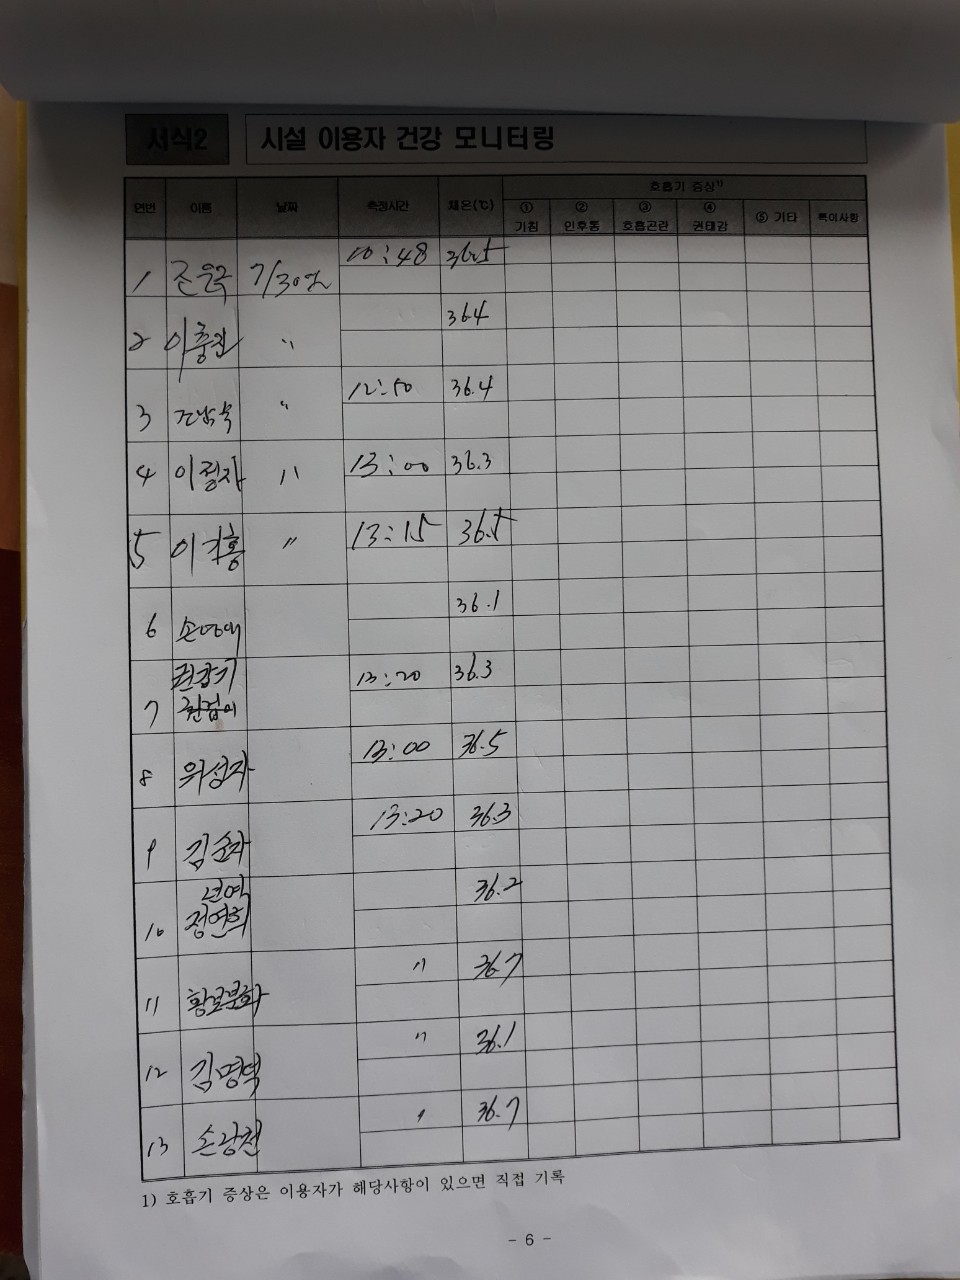 서식2 시설 이용자 건강 모니터링
연번 이름 날짜 측정시간 체온(℃) 호흡기 증상¹⁾
① 기침 ② 인후통 ③ 호흡곤란 ④ 권태감 ⑤ 기타 특이사항
1 7/30일 10:48 36.5
2 이충진 〃 36.4
3 조남숙 〃 12:50 36.4
4 이정자 〃 13:00 36.3
5 〃 13:15 36.5
6 36.1
7 13:20 36.3
8 위성자 13:00 36.5
9 김순자 13:20 36.3
10 정연희 36.2
11 황보분화 〃 36.7
12 김명덕 〃 36.1
13 손광천 〃 36.7
1) 호흡기 증상은 이용자가 해당사항이 있으면 직접 기록
- 6 -